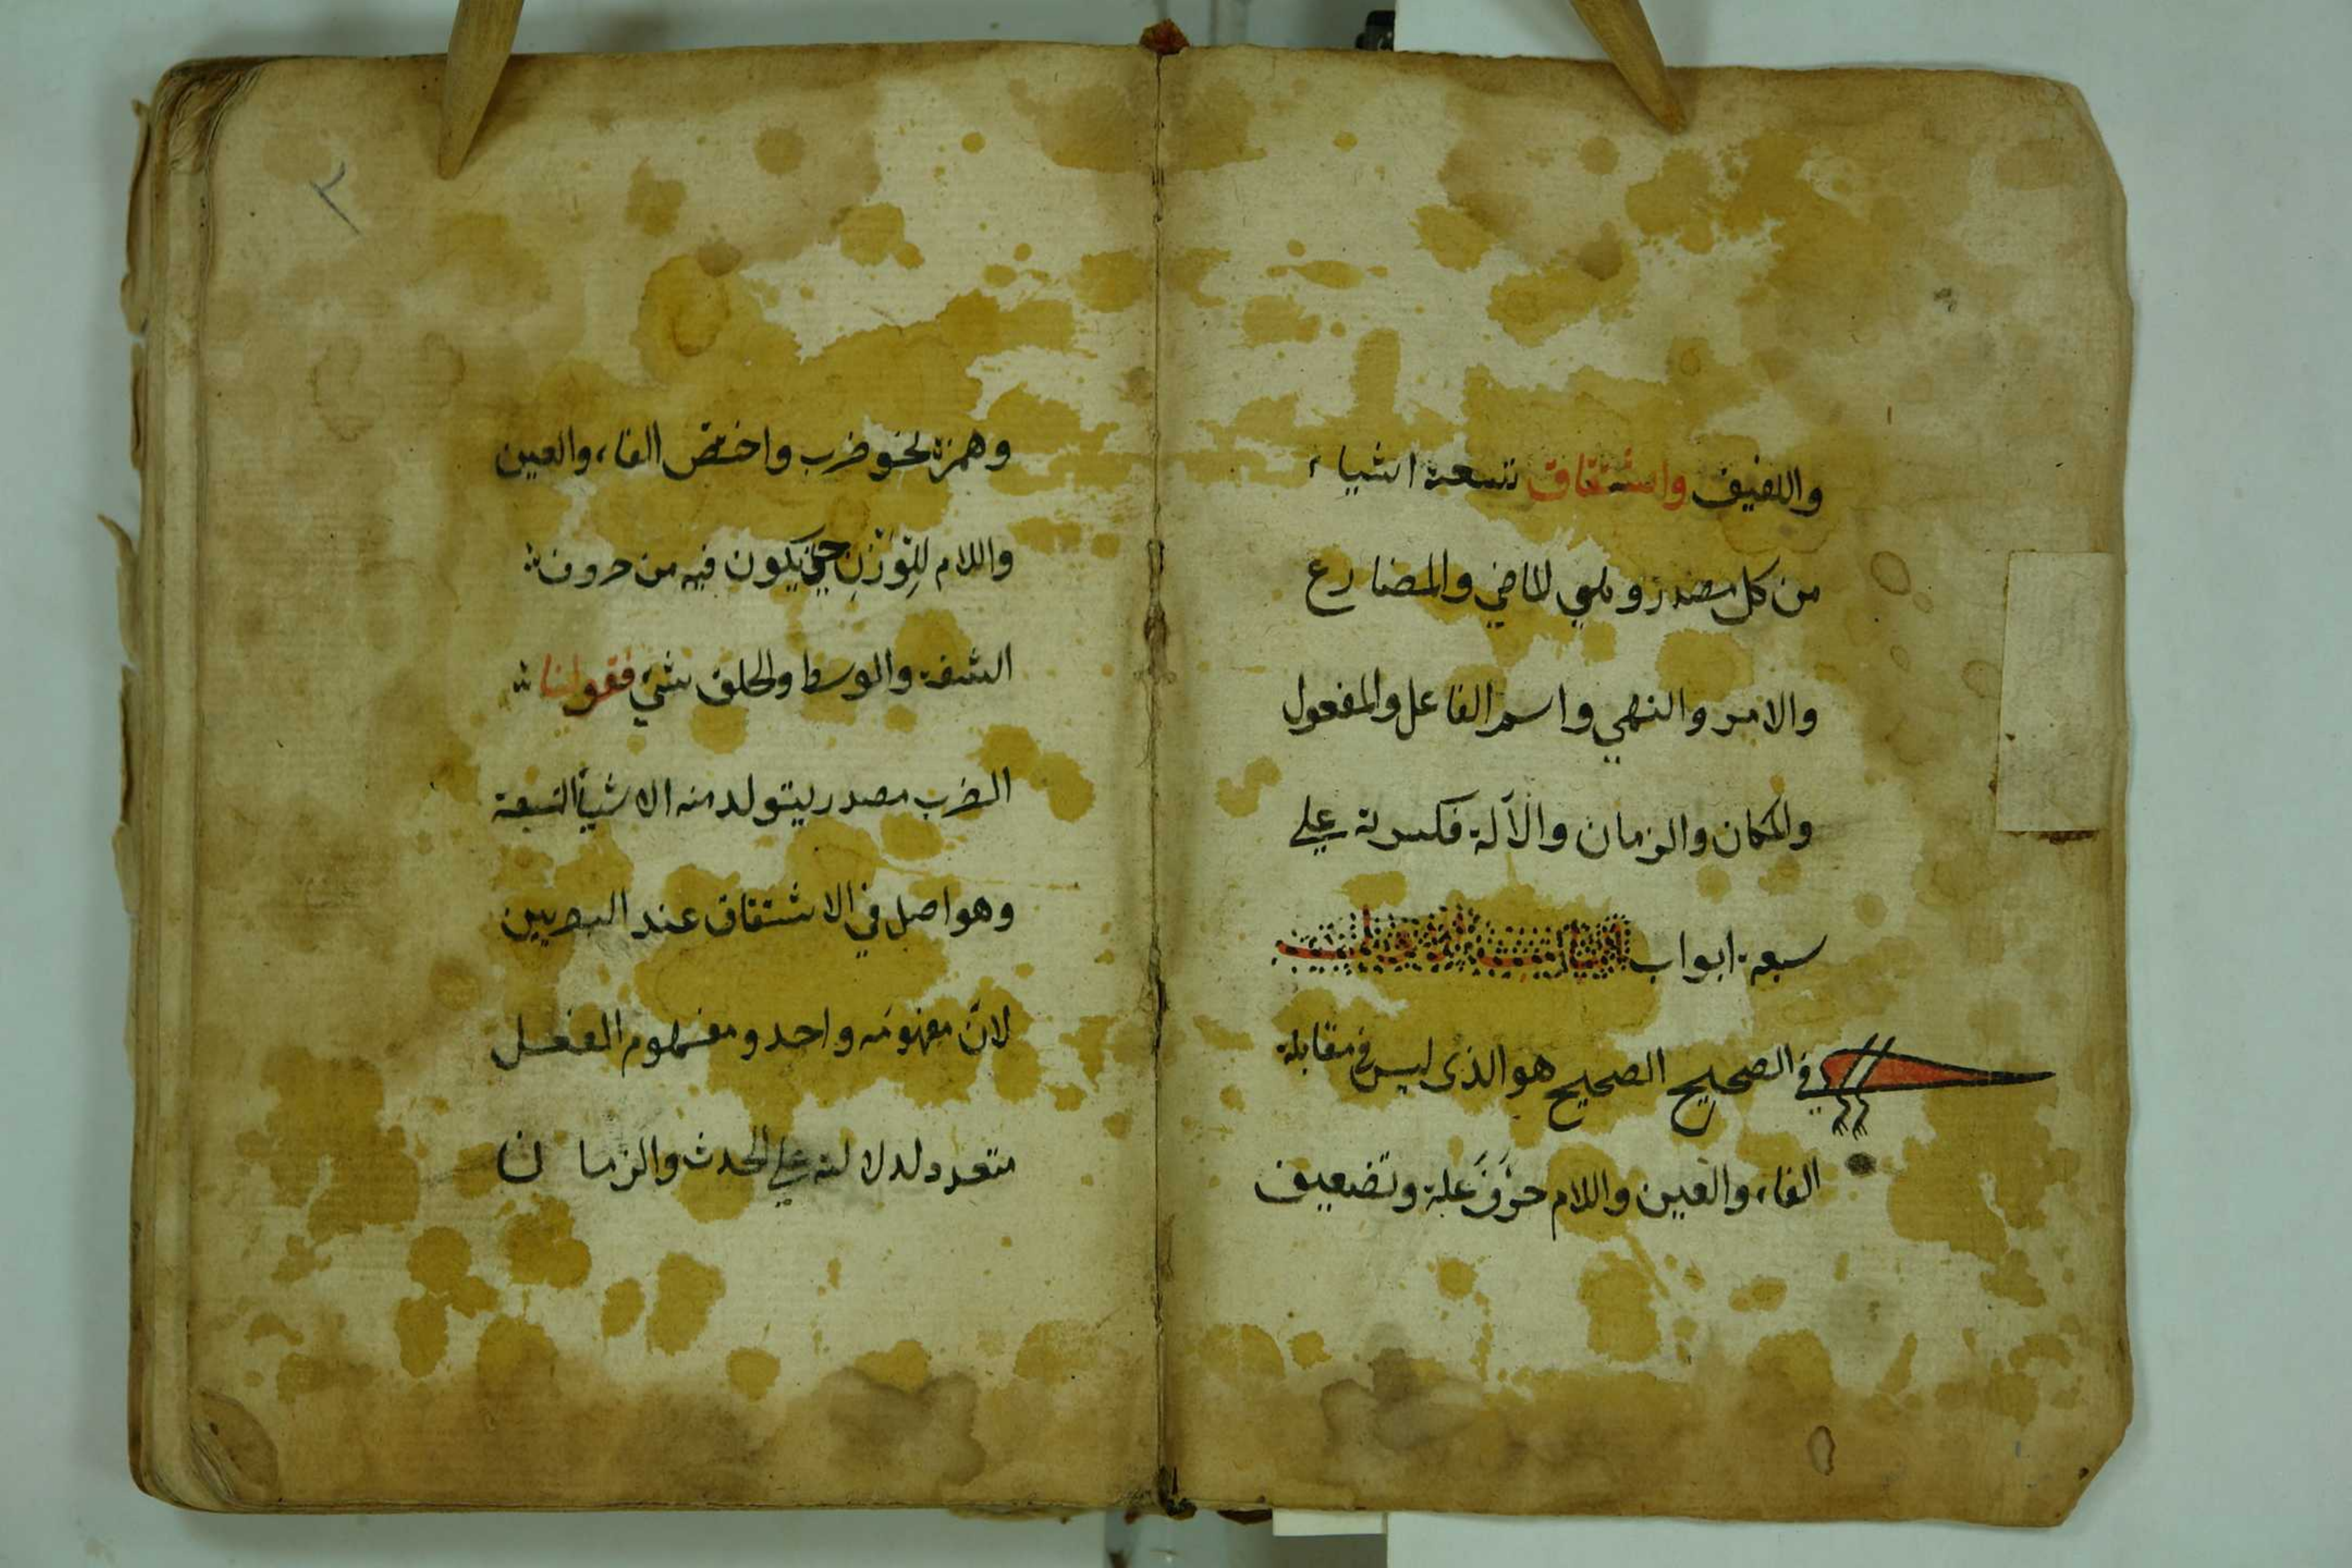 واللفيف واشتقاق تسعة اشياء
من كل مصدر وهي الماضي والمضارع
والامر والنهي واسم الفاعل والمفعول
والمكان والزمان والآلة فكسرته علي
سبعة ابواب الباب الاول
في الصحيح الصحيح هو الذى ليس في مقابلة
الفاء والعين واللام حرف علة وتضعيف
٢
وهمزة نحو ضرب واختص الفاء والعين
واللام للوزن حتي يكون فيه من حروف
الشفة والوسط والحلق شيء فقولنا
الضرب مصدر يتولد منه الاشياء التسعة
وهو اصل في الاشتقاق عند البصريين
لان مفهومه واحد ومفهوم الفعل
متعدد لدلالته علي الحدث والزمان